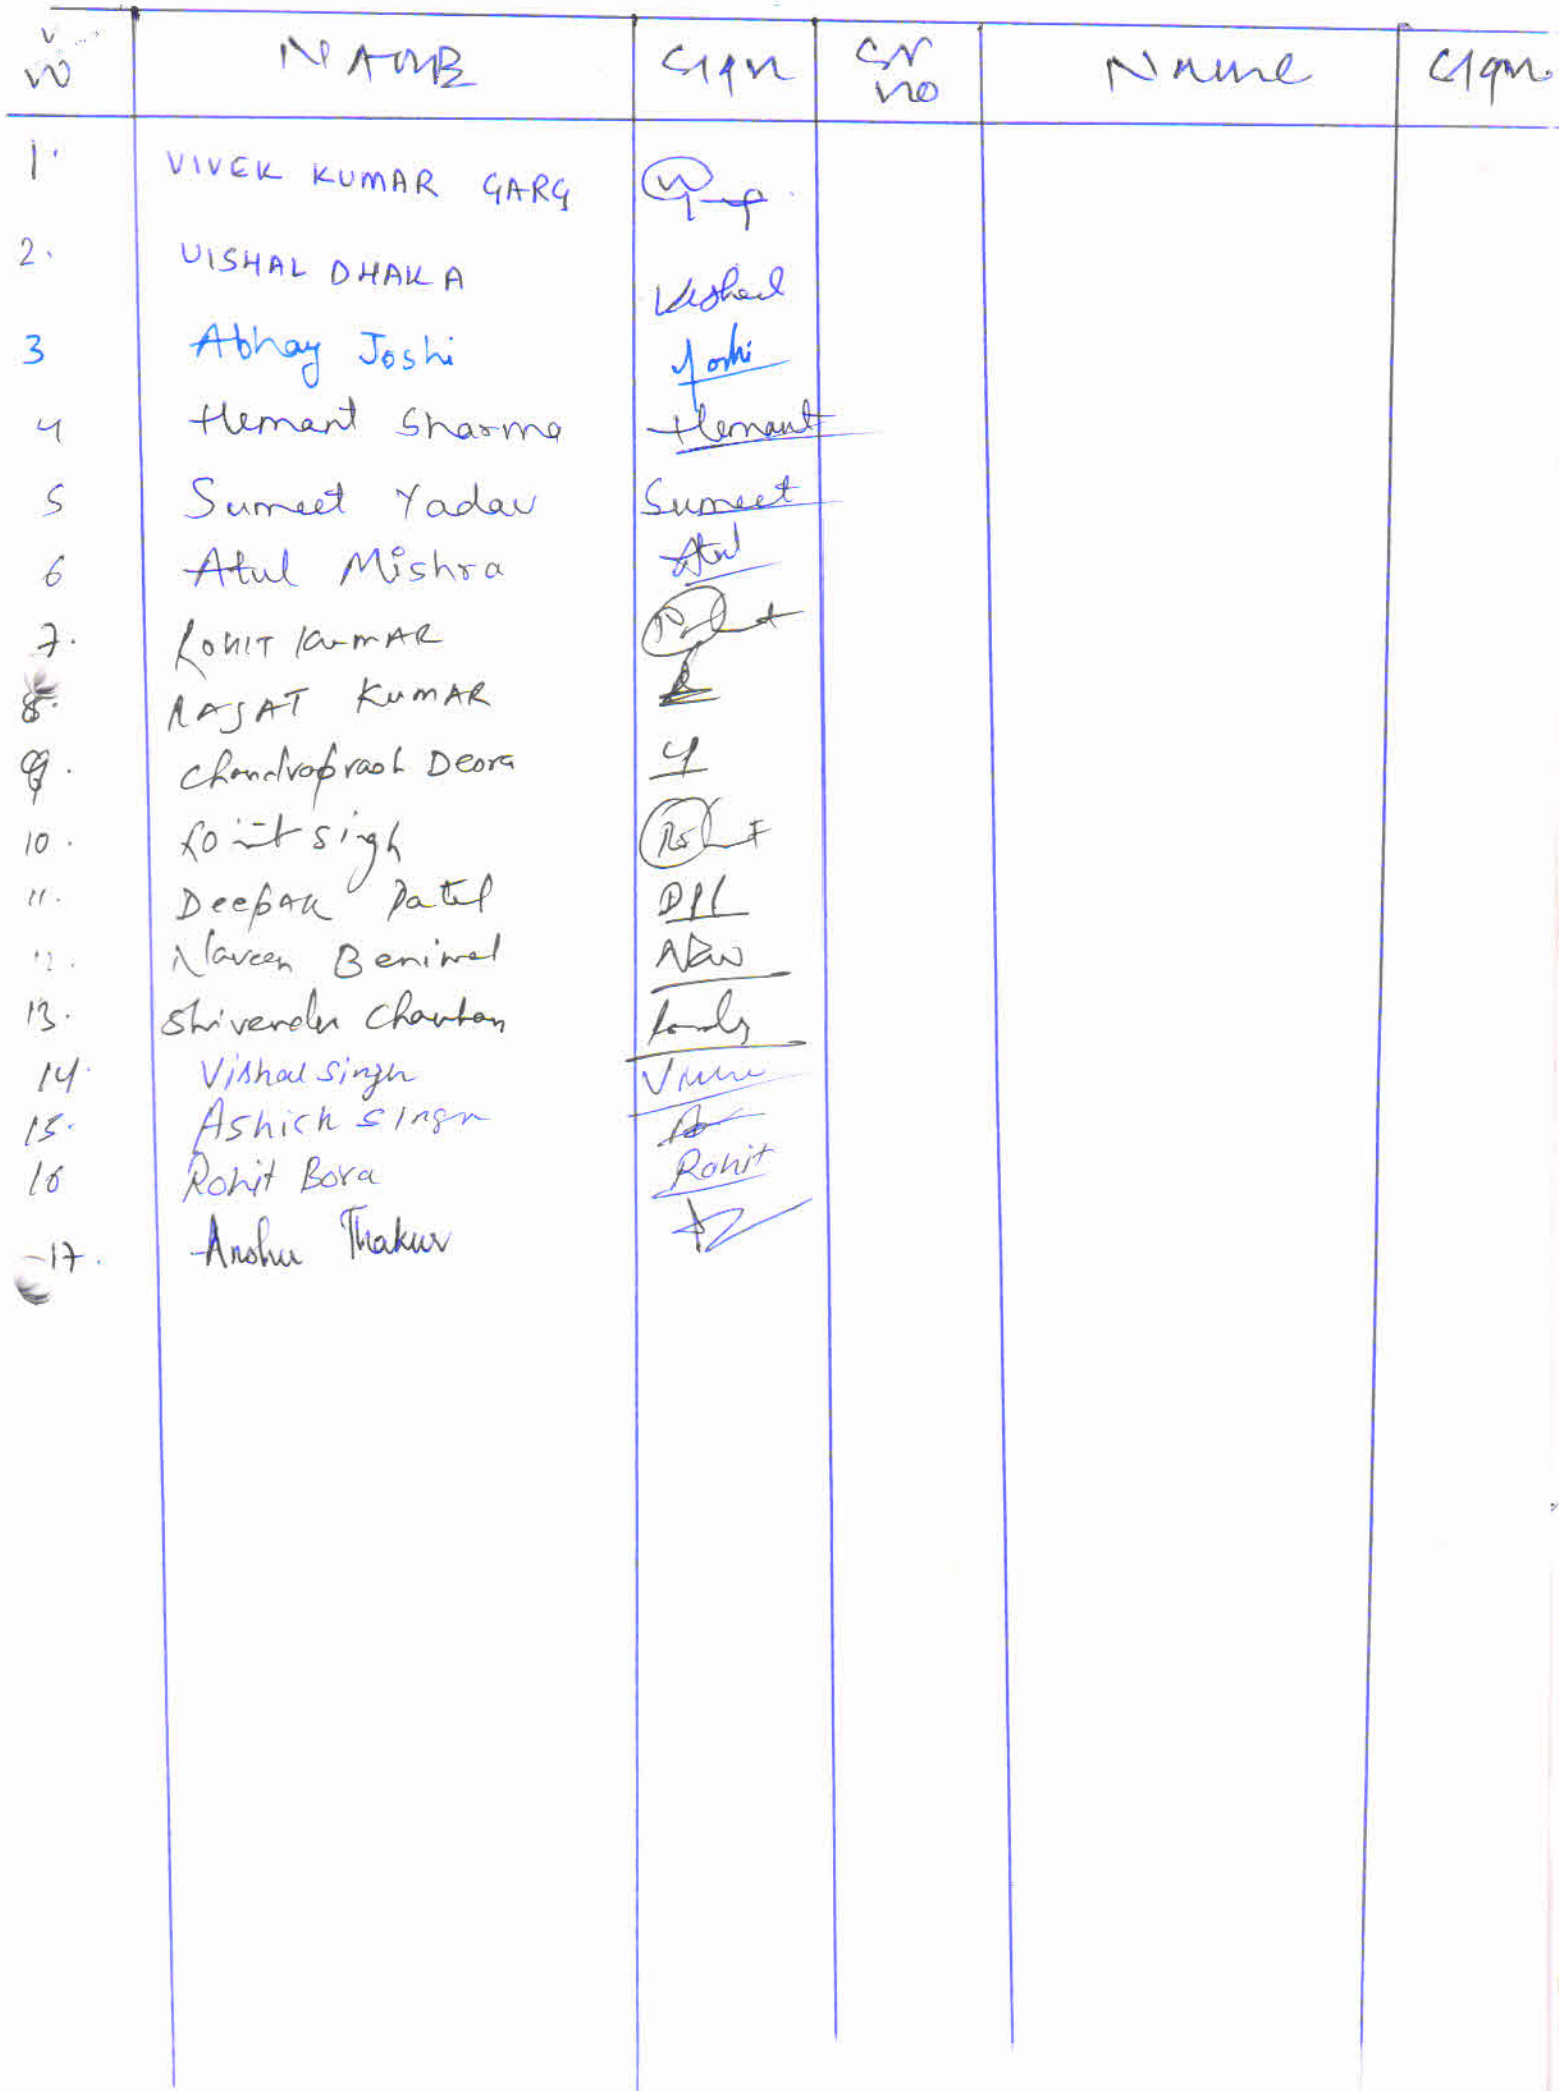 no NAME Sign Sr no Name Sign
1. VIVEK KUMAR GARG
2. VISHAL DHAKA Vishal
3 Abhay Joshi Joshi
4 Hemant Sharma Hemant
5 Sumeet Yadav Sumeet
6 Atul Mishra Atul
7. ROHIT KUMAR
8. RAJAT KUMAR
9. Chandraprash Deora
10. singh
11. Deepak Patel
12. Naveen Beniwal
13. Chauhan
14. Vishal Singh
15. Ashich Singh
16 Rohit Bora Rohit
17. Anshu Thakur